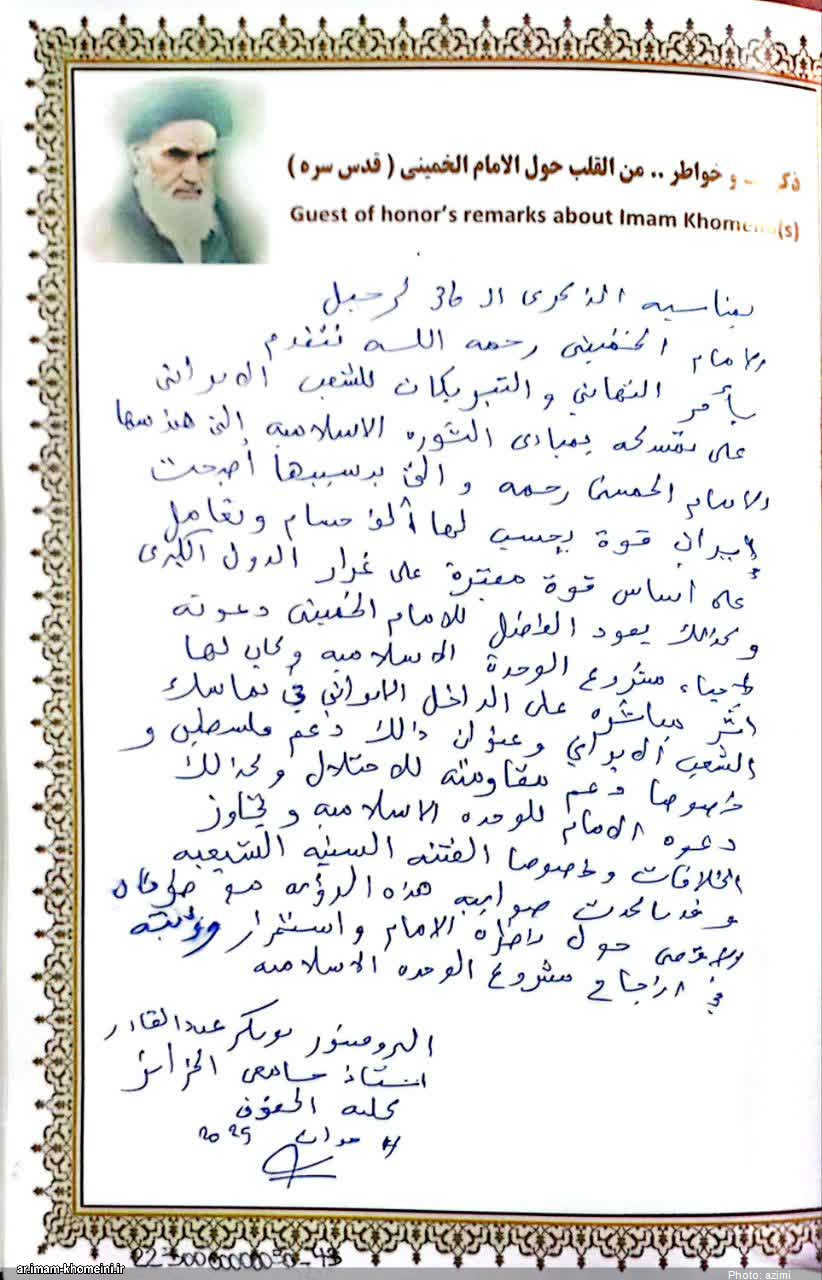 ذكـ و خواطر .. من القلب حول الامام الخمينى ( قدس سره )
Guest of honor's remarks about Imam Khomeini(s)
بمناسبه الذكرى ال 36 لرحيل
الامام الخميني رحمه الله نتقدم
بأحر التهاني و التبريكات للشعب الايراني
على تمسكه بمبادى الثوره الاسلاميه التي هندسها
الامام الخميني رحمه و التي بسببها أصبحت
إيران قوة يحسب لها ألف حسام وتعامل
على اساس قوة معتبرة على غرار الدول الكبرى
وكذالك يعود الفضل للامام الخميني دعوته
لاحياء مشروع الوحدة الاسلاميه وكان لها
اثر مباشره على الداخل الايراني في تماسك
الشعب الايراني وعنوان ذالك دعم فلسطين و
خصوصا دعم مقاومته للاحتلال وكذالك
دعوه الامام للوحده الاسلاميه وتجاوز
الخلافات وخصوصا الفتنه السنيه الشيعيه
وقد تأكدت صوابيه هذه الرؤيه مع طوفان
الاقصى حول نظرة الامام واستمرار
في انجاح مشروع الوحده الاسلاميه
البروفيسور بوبكر عبدالقادر
استاذ جامعي الجزائر
كليه الحقوق
4 جوان 2025
ar.imam-khomeini.ir
Photo: azimi